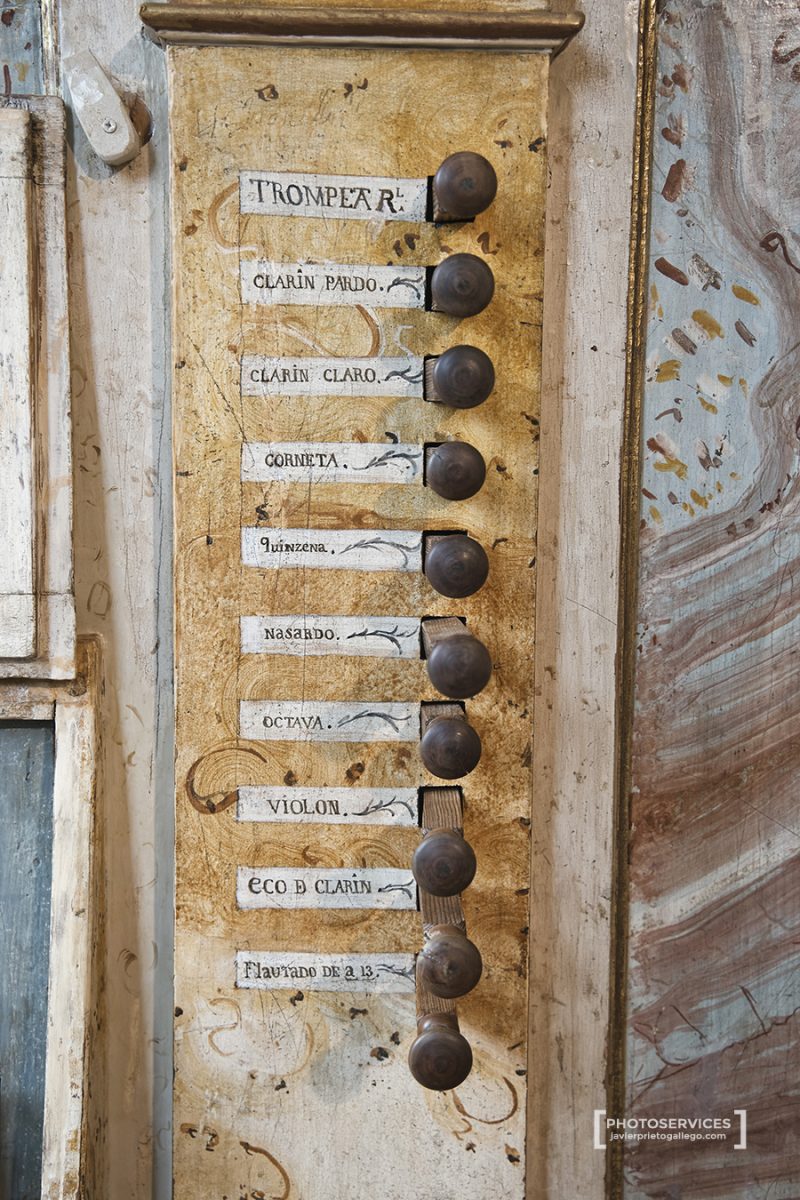 TROMPETA RL.
CLARIN PARDO.
CLARIN CLARO.
CORNETA.
quinzena.
Nasardo.
OCTAVA.
VIOLON.
ECO D CLARIN
Flautado DE a 13.
[PHOTOSERVICES]
javierprietogallego.com